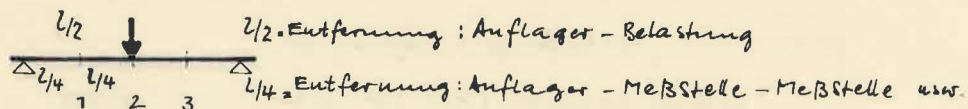 l/2 l/2 = Entfernung : Auflager – Belastung
l/4 l/4 l/4 = Entfernung : Auflager – Meßstelle – Meßstelle usw.
1 2 3